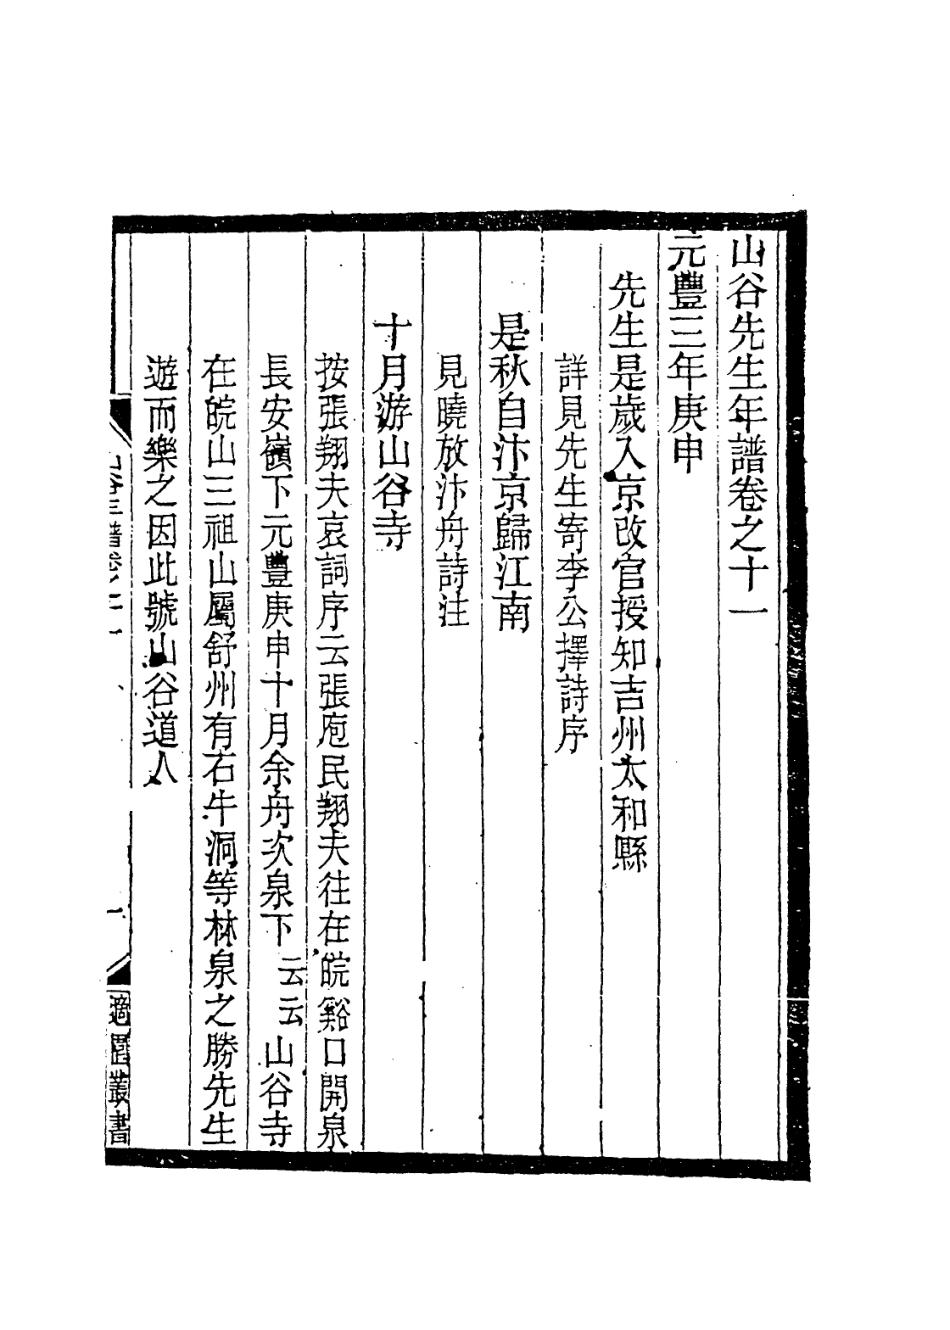 山谷先生年譜卷之十一
元豐三年庚申
先生是歲入京改官授知吉州太和縣
詳見先生寄李公擇詩序
是秋自汴京歸江南
見曉放汴舟詩注
十月游山谷寺
按張翔夫哀詞序云張庖民翔夫往在皖谿口開泉
長安嶺下元豐庚申十月余舟次泉下云云山谷寺
在皖山三祖山屬舒州有石牛洞等林泉之勝先生
遊而樂之因此號山谷道人
一
適園叢書